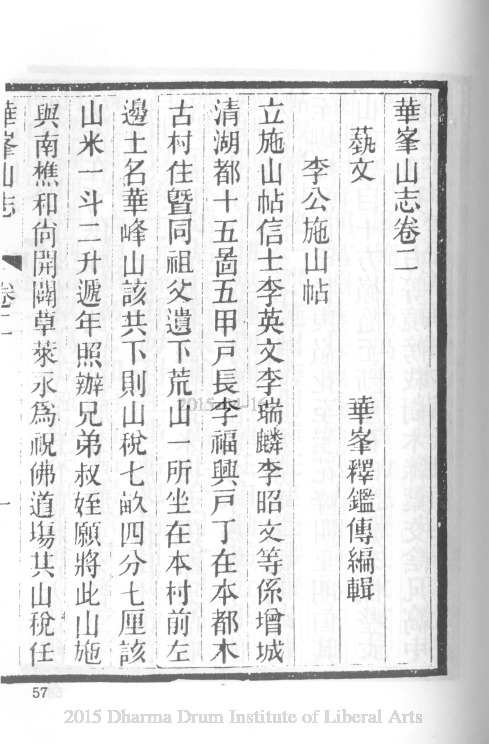 華峯山志卷二
蓺文
華峯釋鑑傳編輯
李公施山帖
立施山帖信士李英文李瑞麟李昭文等係增城
清湖都十五啚五甲戸長李福興戸丁在本都木
古村住曁同祖父遺下荒山一所坐在本村前左
邊土名華峰山該共下則山稅七畝四分七厘該
山米一斗二升遞年照辦兄弟叔姪願將此山施
與南樵和尙開闢草萊永爲祝佛道塲其山稅任
華峯山志
卷二
一
57
2015 Dharma Drum Institute of Liberal Arts